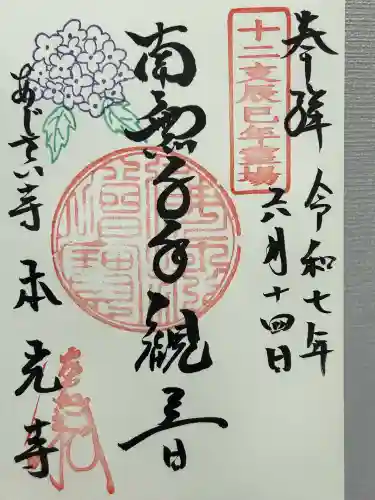 奉拝
令和七年
六月十四日
十二支辰巳年霊場
南無千手観音
あじさい寺
本光寺